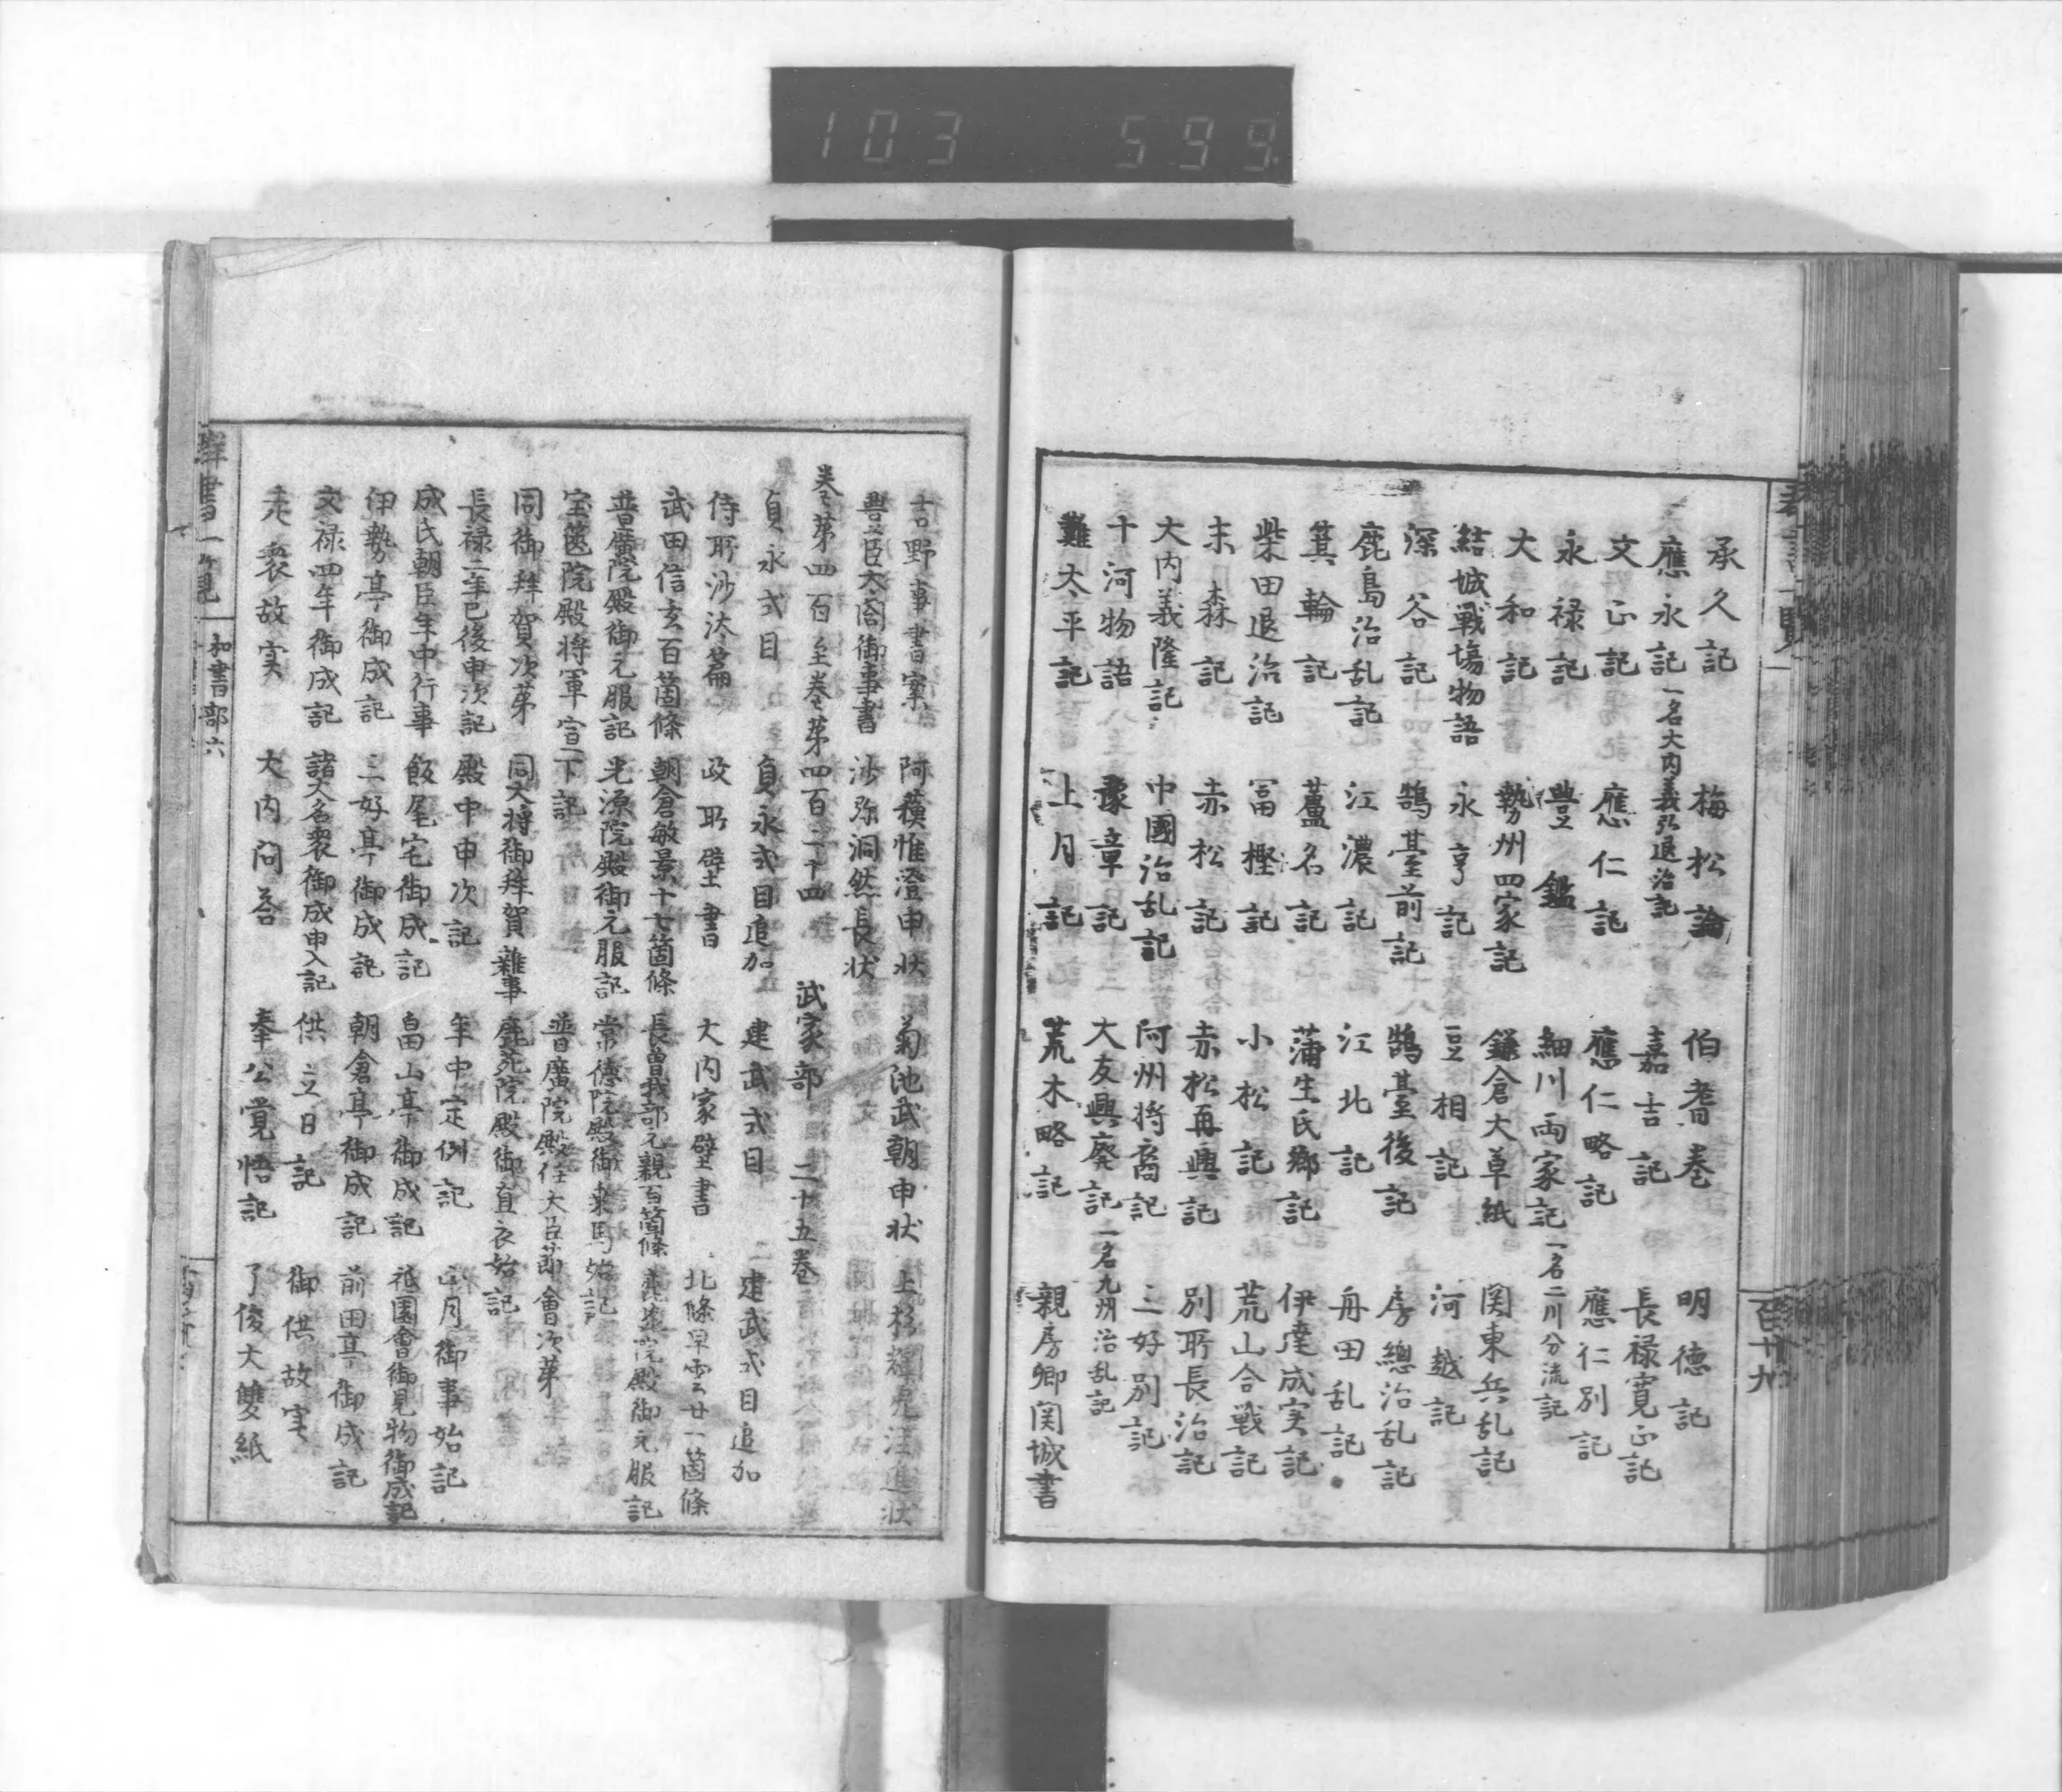 103 599
承久記 梅松論 伯耆巻 明徳記
應永記 一名大内義弘退治記 嘉吉記 長禄寛正記
文正記 應仁記 應仁略記 應仁別記
永禄記 豊鑑 細川両家記 一名二川分流記
大和記 勢州四家記 鎌倉大草紙 関東兵乱記
結城戰場物語 永享記 豆相記 河越記
深谷記 鴻臺前記 鴻臺後記 房總治乱記
鹿島治乱記 江濃記 江北記 舟田乱記
箕輪記 蘆名記 蒲生氏郷記 伊達成実記
柴田退治記 冨樫記 小松記 荒山合戰記
末森記 赤松記 赤松再興記 別所長治記
大内義隆記 中國治乱記 阿州将裔記 三好別記
十河物語 豫章記 大友興廃記 一名九州治乱記
難太平記 上月記 荒木略記 親房卿関城書
百廾九
吉野事書案 阿蘓惟澄申状 菊池武朝申状 上杉輝虎注進状
豊臣大閤御事書 沙弥洞然長状
巻第四百至巻第四百二十四 武家部 二十五巻
貞永式目 貞永式目追加 建武式目 建武式目追加
侍所沙汰篇 政所壁書 大内家壁書 北條早雲廿一箇條
武田信玄百箇條 朝倉敏景十七箇條 長曽我部元親百箇條 鹿苑院殿御元服記
普廣院殿御元服記 光源院殿御元服記 常徳院殿御乗馬始記
宝篋院殿将軍宣下記 普廣院殿任大臣節會次第
同御拜賀次第 同大将御拜賀雜事 鹿苑院殿御直衣始記
長禄二年已後申次記 殿中申次記 年中定例記 正月御事始記
成氏朝臣年中行事 飯尾宅御成記 畠山亭御成記 祇園會御見物御成記
伊勢亭御成記 三好亭御成記 朝倉亭御成記 前田亭御成記
文禄四年御成記 諸大名衆御成申入記 供立日記 御供故実
走衆故実 大内問荅 奉公覚悟記 了俊大雙紙
群書一覧 和書部六